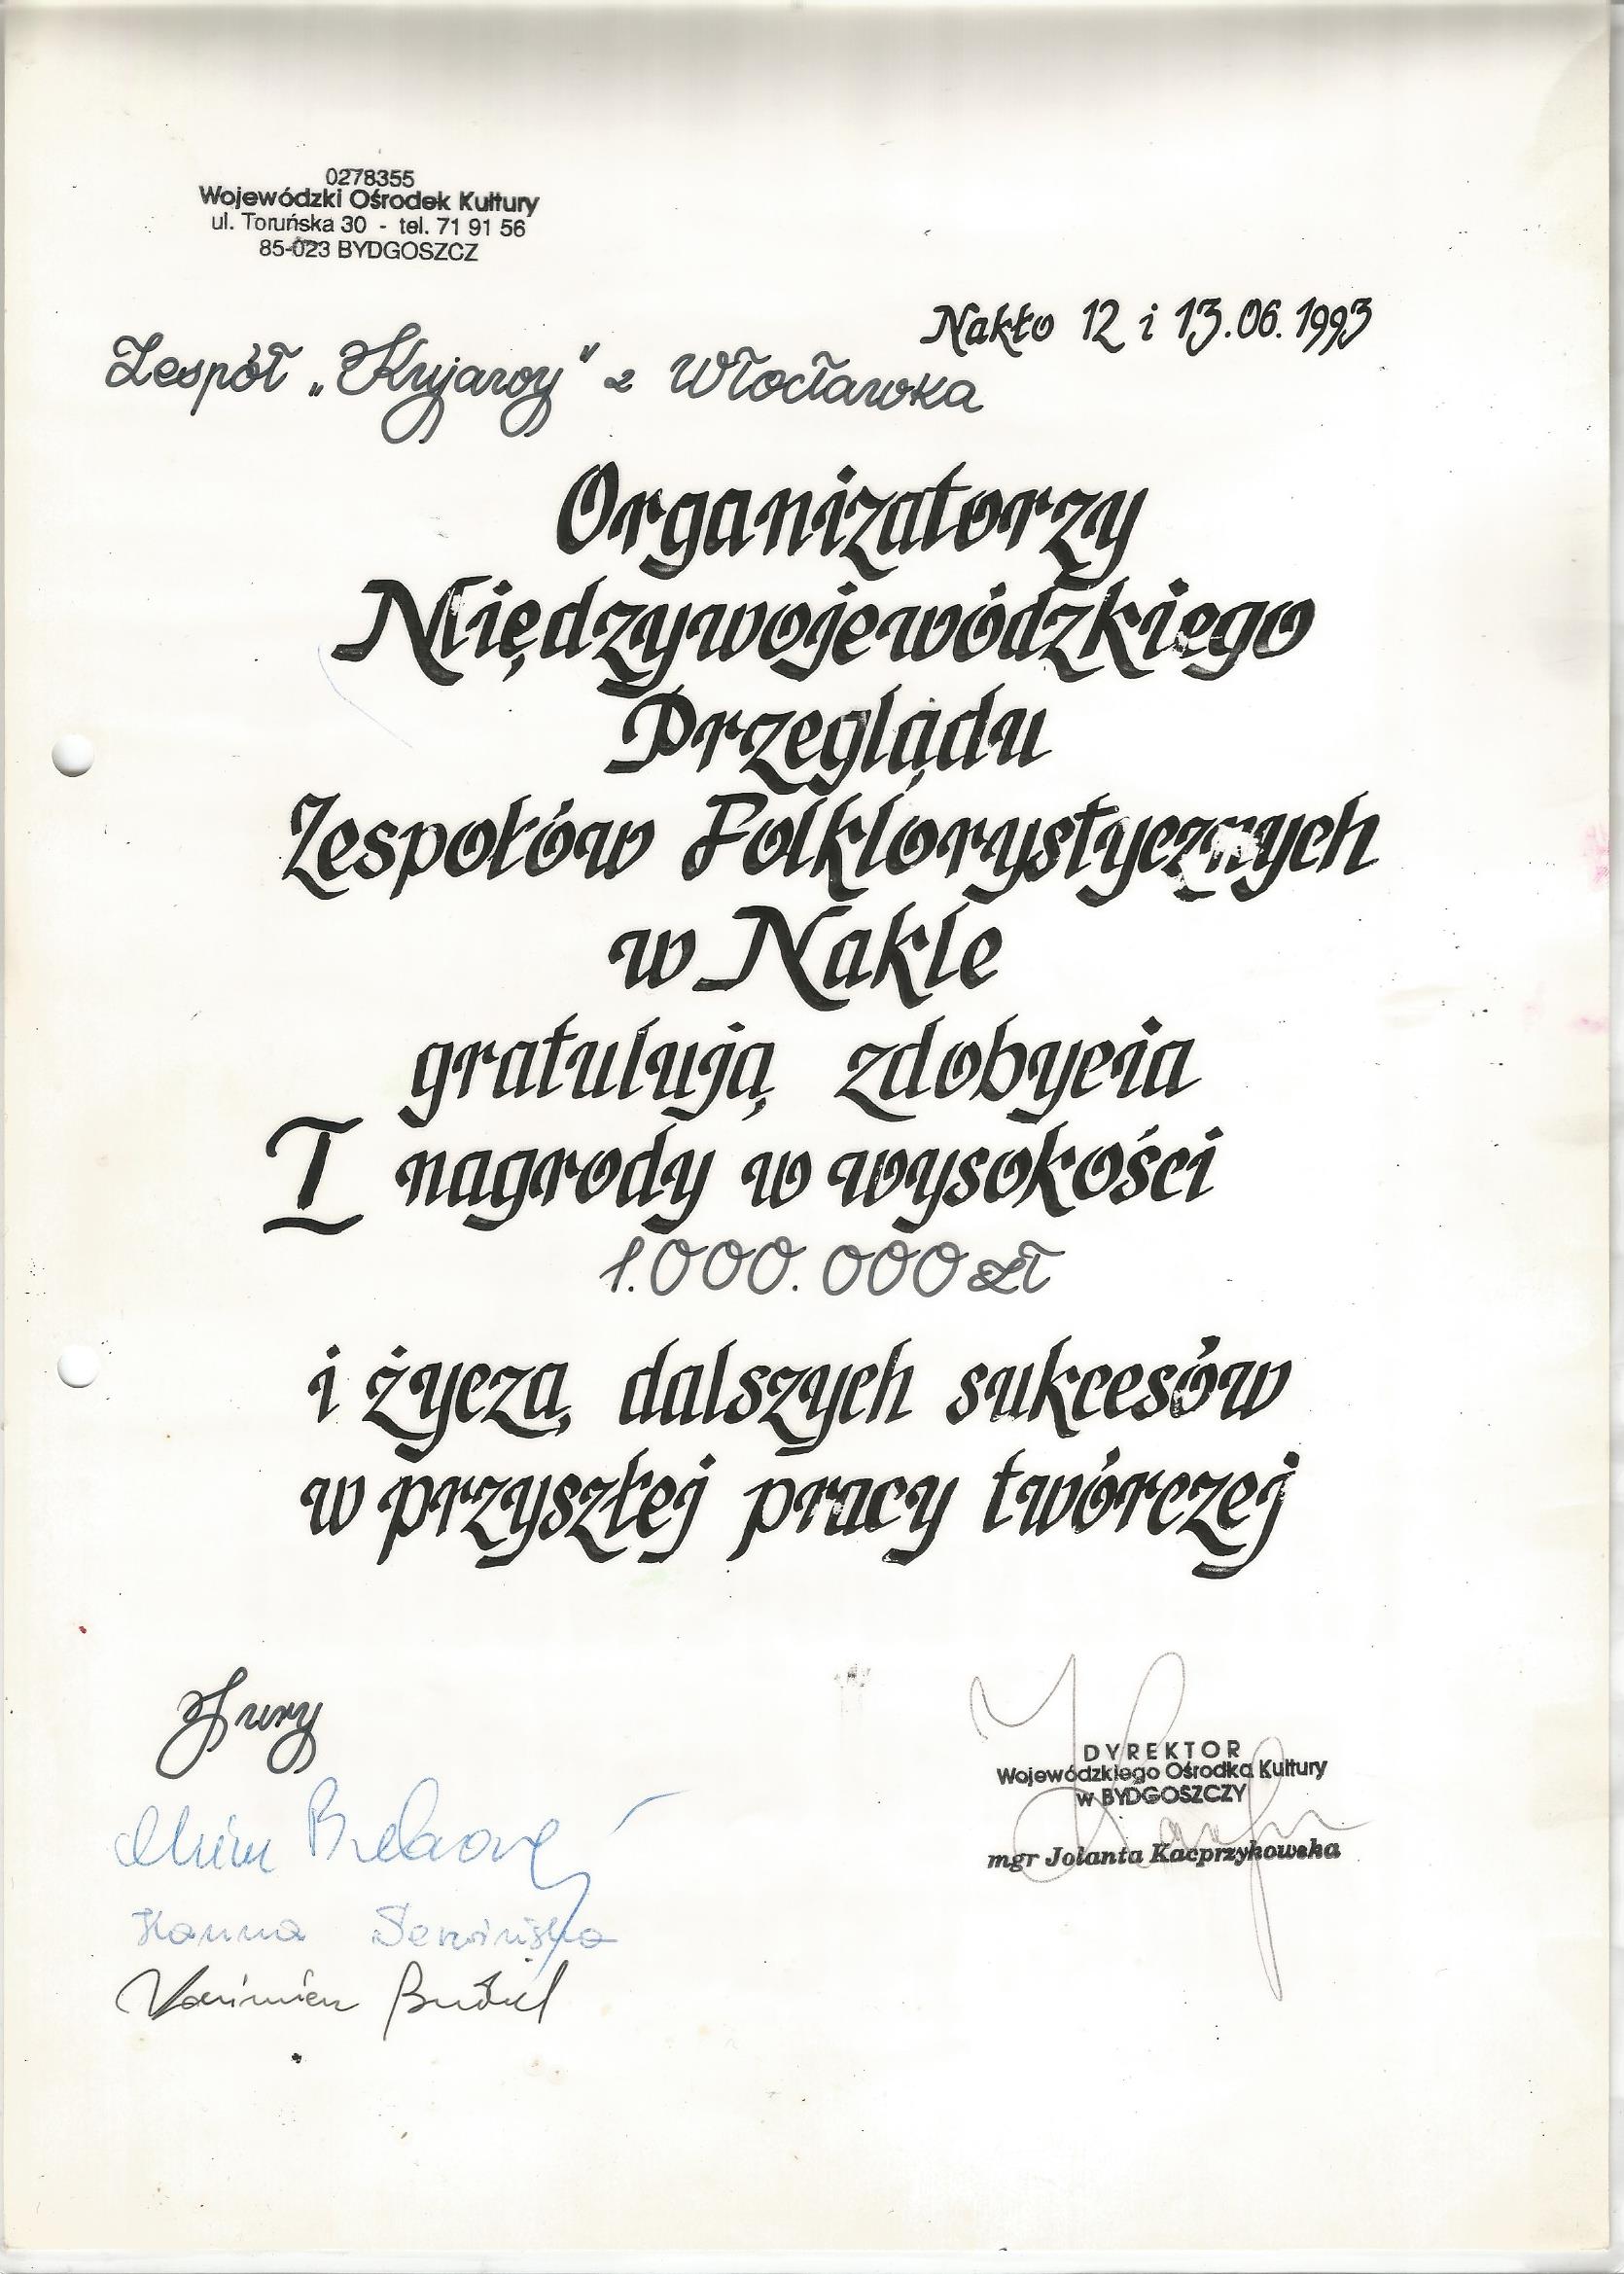 0278355
Wojewódzki Ośrodek Kultury
ul. Toruńska 30 - tel. 71 91 56
85-023 BYDGOSZCZ
Nakło 12 i 13.06.1993
Zespół „Kujawy" z Włocławka
Organizatorzy
Międzywojewódzkiego
Przeglądu
Zespołów Folklorystycznych
w Nakle
gratulują zdobycia
I nagrody w wysokości
1.000.000 zł
i życzą dalszych sukcesów
w przyszłej pracy twórczej
Jury
Hanna
DYREKTOR
Wojewódzkiego Ośrodka Kultury
w BYDGOSZCZY
mgr Jolanta Kacprzykowska